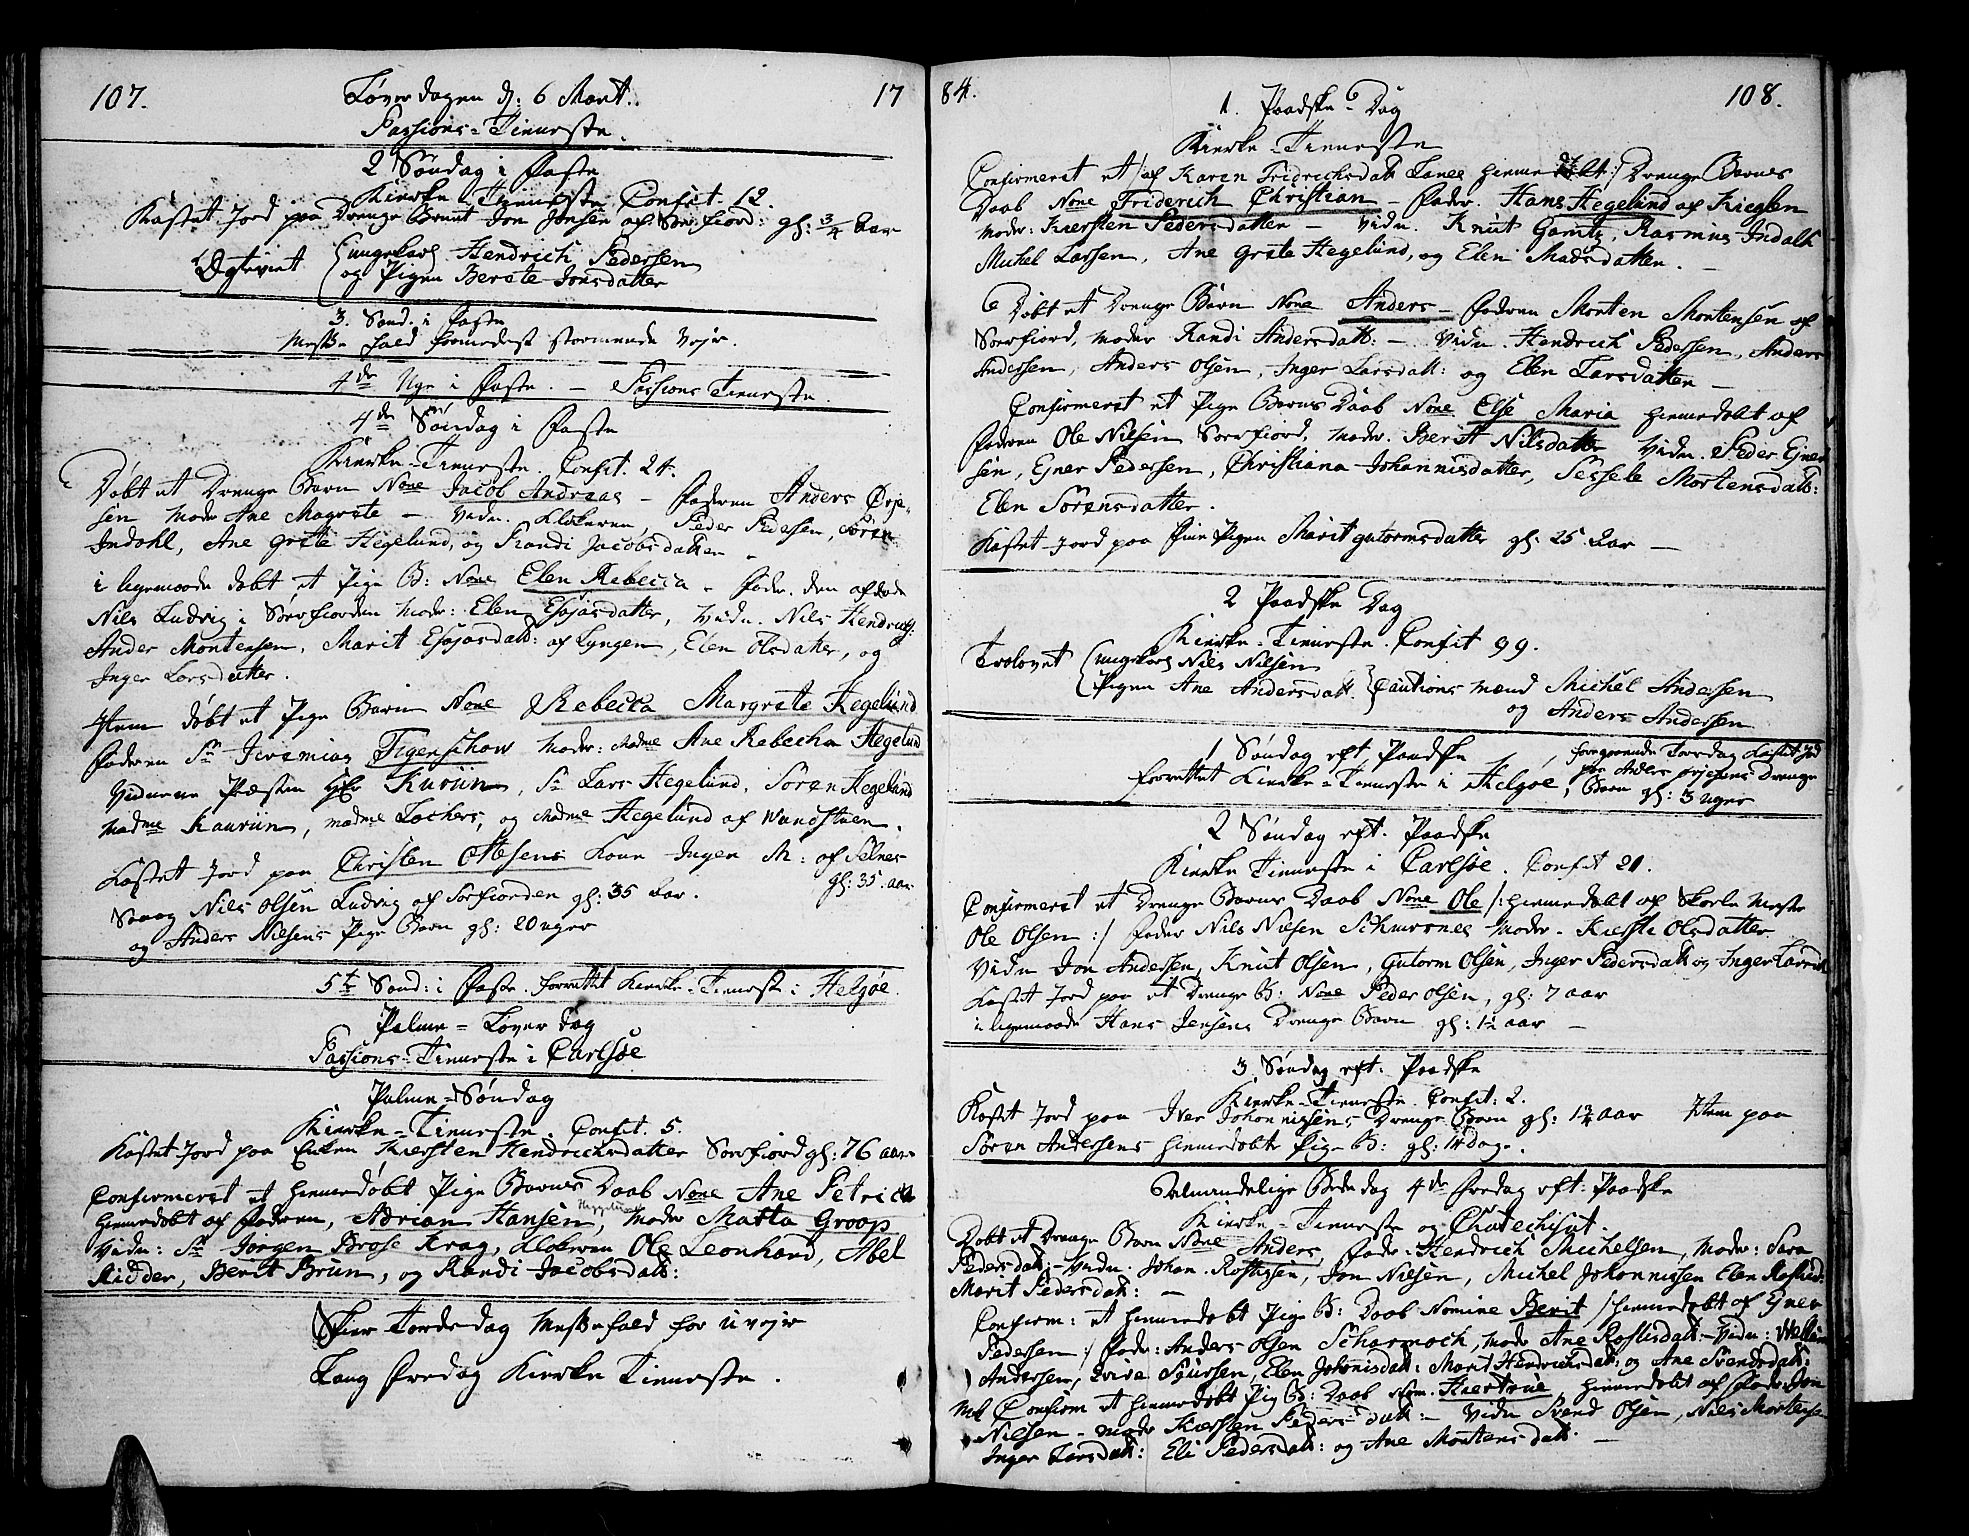 107.
Løverdagen d: 6 Mart.
17
Passions-Tieneste.
2 Søndag i Faste
Kierke Tieneste Confit. 12.
Kastet Jord paa Drenge Barnet Jon Jonsen af Sørfiord: gl: 3/4 Aar
Ægteviet ungekarl Hendrich Pedersen
og Pigen Berete Jonsdatter
3. Sønd. i Faste
Messe fald formedelst stormende Vejr.
4de Uge i Faste. - Passions Tieneste.
4de Søndag i Faste
Kierke-Tieneste. Confit. 24.
Døbt et Drenge Barn None Jacob Andreas - Faderen Anders Ørje-
sen Moder Ane Magrete - Vidn. Klokeren, Peder Pedersen, Søren
Indahl, Ane Grete Hegelund, og Randi Jacobsdatter -
i ligemaade døbt et Pige B: None Elen Rebecca - Fader. den afdøde
Nils Ludvig i Sørfiorden Moder: Elen Esajasdatter, Vidn. Nils Hendrichs:
Ander Mortensen, Marit Esajasdatt: af Lyngen, Elen Olsdatter, og
Inger Larsdatter.
Item døbt et Pige Barn None Rebecca Margrete Hegelund
Faderen Sr Jeremias Figenschow Moder: Madme Ane Rebecha Hegelund
Vidnerne Præsten Hr Kuruin, Sr Lars Hegelund, Søren Hegelund
Madme Kauriin, Madme Lochers, og Madme Hegelund af Wandstuen.
Kastet Jord paa Christen Ottesens Kone Inger M: af Selnes
gl: 35. aar
Saaog Nils Olsen Ludvig af Sørfiorden gl: 35 Aar.
og Anders Nilsens Pige Barn gl: 20 uger
5te Sønd: i Faste. forrettet Kierke-Tieneste i Helgøe.
Palme-Løverdag
Passions-Tieneste i Carlsøe
Palme-Søndag
Kierke-Tieneste. Confit. 5.
Kastet Jord paa Enken Kiersten Hendrichsdatter Sørfiord gl: 76 aar
Confirmeret et hiemedøbt Pige Barnes Daab None Ane Petrica
hiemedøbt af Faderen, Adrian Hansen, Moder Matta Groop
Vidn: Sr Jørgen Brose Krag, Klokeren Ole Leonhard, Abel
Ridder, Berit Brun, og Randi Jacobsdatt:
Skier Torsdag Messefald for Uvejr
Lang Fredag Kierke Tieneste.
84.
108.
1. Paaske Dag
Kierke-Tieneste
Confirmeret et /: af Karen Fridrichsdatt Lanes hiemedøbt :/ Drenge Barnes
Daab None Friderich Christian - Fader. Hans Hegelund af Kieglen
Moder: Kiersten Pedersdatter - Vidn. Knut Gamtz, Rasmus Indahl
Michel Larsen, Ane Grete Hegelund, og Elen Madsdatter. -
Døbt et Drenge Barn None Anders - Faderen Morten Mortensen af
Sørfiord, Moder Randi Andersdatt: - Vidn. Hendrich Pedersen, Anders
Andersen, Anders Olsen, Inger Larsdatt: og Elen Larsdatter -
Confirmeret et Pige Barnes Daab None Else Maria hiemedøbt af
Faderen Ole Nilsen Sørfiord, Moder. Berit Nilsdatter Vidn. Peder Ejner
sen, Ejner Pedersen, Christiana Johannisdatter, Sessele Mortensdatt:
Elen Sørensdatter.
Kastet Jord paa Pigen Marit Gutormsdatter gl: 25 Aar -
2 Paaske Dag
Kierke-Tieneste. Confit 99.
Trolovet ungekarl Nils Nilsen
Pigen Ane Andersdatt. Cautions Mænd Michel Andersen
og Anders Andersen
1 Søndag eft. Paaske
forrettet Kierke-Tieneste i Helgøe,
foregaaende Torsdag Kastet Jord
paa Anders Ørjesens Drenge
Barn gl: 3 uger
2 Søndag eft. Paaske
Kierke Tieneste i Carlsøe. Confit 21.
Confirmeret et Drenge Barnes Daab None Ole /: hiemedøbt af Skole Mester
Ole Olsen :/ Fader Nils Nilsen Schursnes Moder. Kirsti Olsdatter
Vidn Jon Andersen, Knut Olsen, Gutorm Olsen, Inger Pedersdatt og Inger Larsd
Kastet Jord paa et Drenge B: None Peder Olsen, gl: 7 aar
i ligemaade Hans Jensens Drenge Barn gl: 1 1/2 aar -
3 Søndag eft. Paaske
Kierke-Tieneste. Confit: 2.
Kastet Jord paa Iver Johannissens Drenge Barn gl: 1 3/4 aar Item paa
Søren Andersens hiemedøbte Pige B: gl: 14 dage.
Almindelige Bededag 4de Fredag eft: Paaske
Kierke-Tieneste og Chatechisat.
Døbt et Drenge Barn None Anders, Fader: Hendrich Michelsen, Moder: Sara
Pedersdatt: - Vidn. Johan. Rostissen, Jon Nilsen, Michel Johannissen Elen
Marit Pedersdatt: -
Confirm: et hiemedøbt Pige B: Daab Nomine Berit /: hiemedøbt af Ejner
Pedersen :/ Fader: Anders Olsen Scharmoch, Moder Ane Rostisdatt: - Vidn:
Andersen, Siursen, Elen Johanisdatt: Marit Hendrichsdatt: og Ane Svendsdatt:
Confirm et hiemedøbt Pig B: Daab Nom. Kiertrue, hiemedøbt af Fader Jon
Nilsen - Moder Kiersten Pedersdatt: - Vidn Svend Olsen, Nils Mortens
Inger Larsdatt: Eli Pedersdatt: og Ane Mortensdatt. -